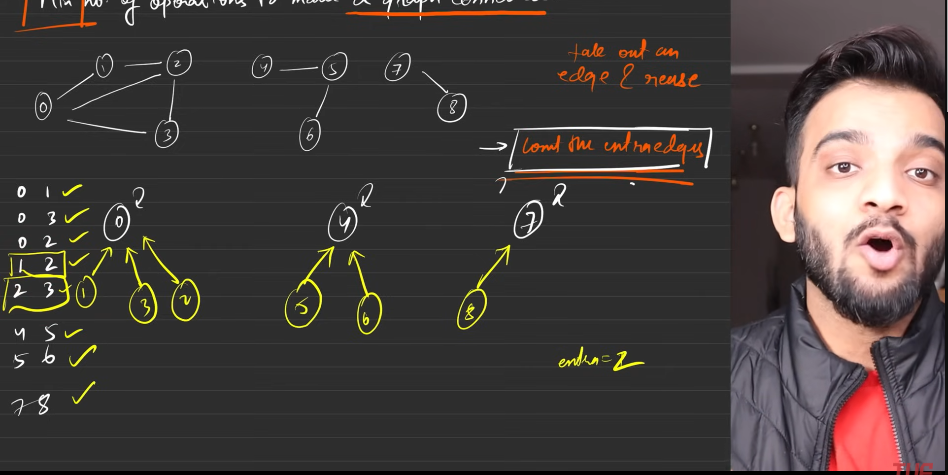 Min no. of operations to make a graph connected
1 2 4 5 7
take out an
edge & reuse
0 3 6 8
→ count the extra edges
0 1
0 3
0 2
1 2
2 3
4 5
5 6
7 8
0 4 7
1 3 2 5 6 8
extra = 2
TUF